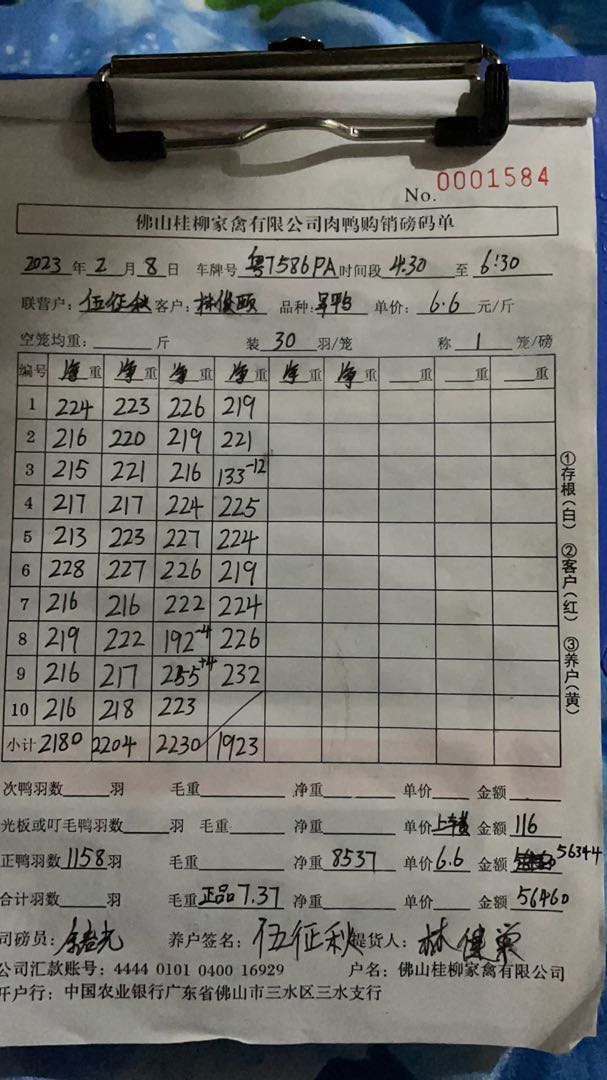 No. 0001584
佛山桂柳家禽有限公司肉鸭购销磅码单
2023 年 2 月 8 日 车牌号 粤T586PA 时间段 4:30 至 6:30
联营户: 伍征秋 客户: 林俊颐 品种: 单价: 6.6 元/斤
空笼均重: 斤 装 30 羽/笼 称 1 笼/磅
编号 净重 净重 净重 净重 净重 净重 重 重 重
1 224 223 226 219
2 216 220 219 221
3 215 221 216 133-12
4 217 217 224 225
5 213 223 227 224
6 228 227 226 219
7 216 216 222 224
8 219 222 192-4 226
9 216 217 255+4 232
10 216 218 223
小计 2180 2204 2230 1923
次鸭羽数 羽 毛重 净重 单价 金额
光板或叮毛鸭羽数 羽 毛重 净重 单价 上车费 金额 116
正鸭羽数 1158 羽 毛重 净重 8537 单价 6.6 金额 56344
合计羽数 羽 毛重 正品7.37 净重 单价 金额 56460
司磅员: 养户签名: 伍征秋 提货人: 林
公司汇款账号: 4444 0101 0400 16929 户名: 佛山桂柳家禽有限公司
开户行: 中国农业银行广东省佛山市三水区三水支行
①存根(白) ②客户(红) ③养户(黄)